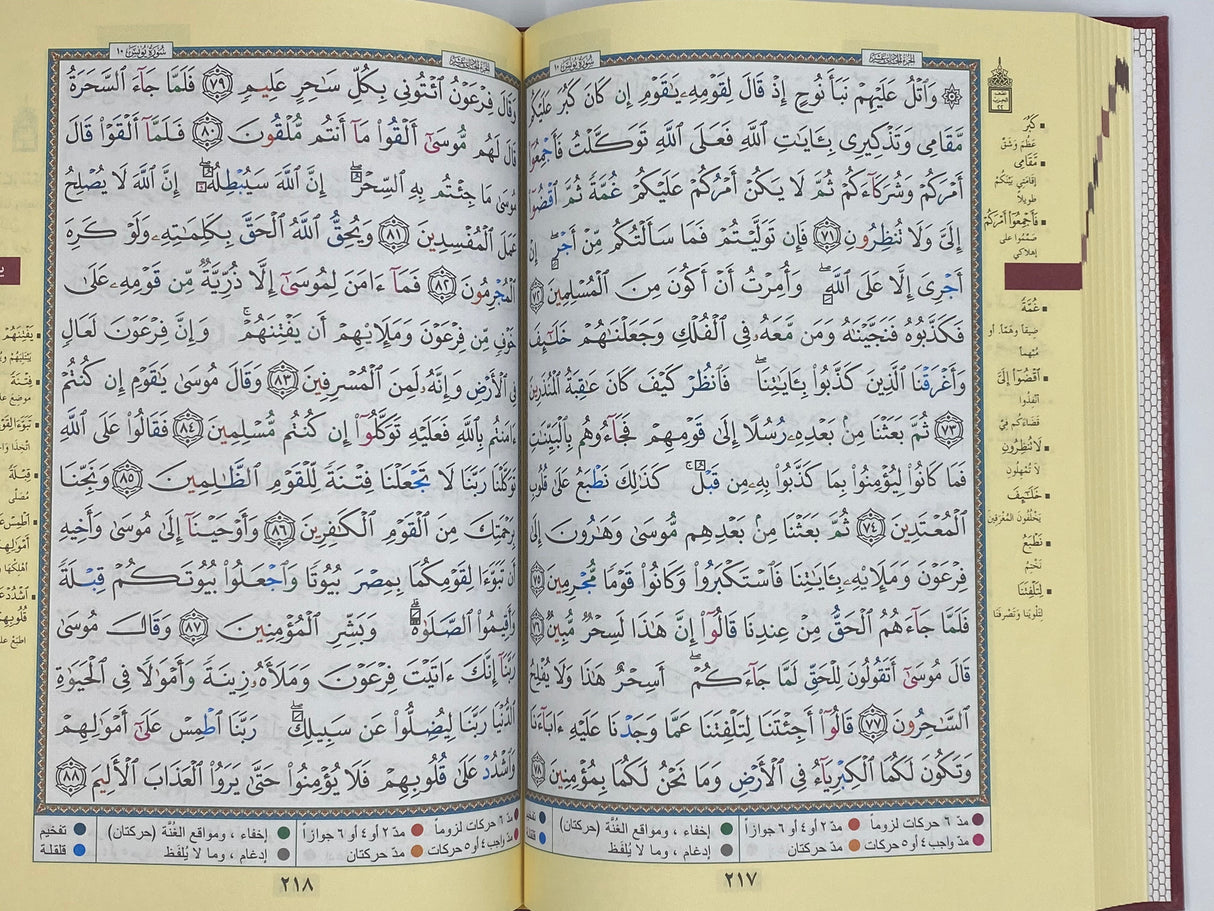 سورة يونس ١٠
الجزء الحادي عشر
۞ وَٱتْلُ عَلَيْهِمْ نَبَأَ نُوحٍ إِذْ قَالَ لِقَوْمِهِۦ يَـٰقَوْمِ إِن كَانَ كَبُرَ عَلَيْكُم
مَّقَامِى وَتَذْكِيرِى بِـَٔايَـٰتِ ٱللَّهِ فَعَلَى ٱللَّهِ تَوَكَّلْتُ فَأَجْمِعُوٓا۟
أَمْرَكُمْ وَشُرَكَآءَكُمْ ثُمَّ لَا يَكُنْ أَمْرُكُمْ عَلَيْكُمْ غُمَّةً ثُمَّ ٱقْضُوٓا۟
إِلَىَّ وَلَا تُنظِرُونِ ٧١ فَإِن تَوَلَّيْتُمْ فَمَا سَأَلْتُكُم مِّنْ أَجْرٍ إِنْ
أَجْرِىَ إِلَّا عَلَى ٱللَّهِ وَأُمِرْتُ أَنْ أَكُونَ مِنَ ٱلْمُسْلِمِينَ ٧٢
فَكَذَّبُوهُ فَنَجَّيْنَـٰهُ وَمَن مَّعَهُۥ فِى ٱلْفُلْكِ وَجَعَلْنَـٰهُمْ خَلَـٰٓئِفَ
وَأَغْرَقْنَا ٱلَّذِينَ كَذَّبُوا۟ بِـَٔايَـٰتِنَا فَٱنظُرْ كَيْفَ كَانَ عَـٰقِبَةُ ٱلْمُنذَرِينَ
٧٣ ثُمَّ بَعَثْنَا مِنۢ بَعْدِهِۦ رُسُلًا إِلَىٰ قَوْمِهِمْ فَجَآءُوهُم بِٱلْبَيِّنَـٰتِ
فَمَا كَانُوا۟ لِيُؤْمِنُوا۟ بِمَا كَذَّبُوا۟ بِهِۦ مِن قَبْلُ كَذَٰلِكَ نَطْبَعُ عَلَىٰ قُلُوبِ
ٱلْمُعْتَدِينَ ٧٤ ثُمَّ بَعَثْنَا مِنۢ بَعْدِهِم مُّوسَىٰ وَهَـٰرُونَ إِلَىٰ
فِرْعَوْنَ وَمَلَإِي۟هِۦ بِـَٔايَـٰتِنَا فَٱسْتَكْبَرُوا۟ وَكَانُوا۟ قَوْمًا مُّجْرِمِينَ ٧٥
فَلَمَّا جَآءَهُمُ ٱلْحَقُّ مِنْ عِندِنَا قَالُوٓا۟ إِنَّ هَـٰذَا لَسِحْرٌ مُّبِينٌ ٧٦
قَالَ مُوسَىٰٓ أَتَقُولُونَ لِلْحَقِّ لَمَّا جَآءَكُمْ أَسِحْرٌ هَـٰذَا وَلَا يُفْلِحُ
ٱلسَّـٰحِرُونَ ٧٧ قَالُوٓا۟ أَجِئْتَنَا لِتَلْفِتَنَا عَمَّا وَجَدْنَا عَلَيْهِ ءَابَآءَنَا
وَتَكُونَ لَكُمَا ٱلْكِبْرِيَآءُ فِى ٱلْأَرْضِ وَمَا نَحْنُ لَكُمَا بِمُؤْمِنِينَ ٧٨
كَبُرَ
عَظُمَ وَشَقَّ
مَّقَامِى
إقامتي بينكم
طويلاً
فَأَجْمِعُوٓا۟ أَمْرَكُمْ
صمّموا على
إهلاكي
غُمَّةً
ضيقاً وهمّاً، أو
مُبْهماً
ٱقْضُوٓا۟ إِلَىَّ
أنفذوا
قضاءكم فيّ
لَا تُنظِرُونِ
لا تُمهلون
خَلَـٰٓئِفَ
يخلفون المغرقين
نَطْبَعُ
نختِم
لِتَلْفِتَنَا
لتلوينا وتصرفنا
مدّ ٦ حركات لزوماً
مدّ ٢ أو ٤ أو ٦ جوازاً
إخفاء ، ومواقع الغُنَّة (حركتان)
مدّ واجب ٤ أو ٥ حركات
مدّ حركتان
إدغام ، وما لا يُلفَظ
٢١٧
سورة يونس ١٠
الجزء الحادي عشر
وَقَالَ فِرْعَوْنُ ٱئْتُونِى بِكُلِّ سَـٰحِرٍ عَلِيمٍ ٧٩ فَلَمَّا جَآءَ ٱلسَّحَرَةُ
قَالَ لَهُم مُّوسَىٰٓ أَلْقُوا۟ مَآ أَنتُم مُّلْقُونَ ٨٠ فَلَمَّآ أَلْقَوْا۟ قَالَ
مُوسَىٰ مَا جِئْتُم بِهِ ٱلسِّحْرُ إِنَّ ٱللَّهَ سَيُبْطِلُهُۥٓ إِنَّ ٱللَّهَ لَا يُصْلِحُ
عَمَلَ ٱلْمُفْسِدِينَ ٨١ وَيُحِقُّ ٱللَّهُ ٱلْحَقَّ بِكَلِمَـٰتِهِۦ وَلَوْ كَرِهَ
ٱلْمُجْرِمُونَ ٨٢ فَمَآ ءَامَنَ لِمُوسَىٰٓ إِلَّا ذُرِّيَّةٌ مِّن قَوْمِهِۦ عَلَىٰ
خَوْفٍ مِّن فِرْعَوْنَ وَمَلَإِي۟هِمْ أَن يَفْتِنَهُمْ وَإِنَّ فِرْعَوْنَ لَعَالٍ
فِى ٱلْأَرْضِ وَإِنَّهُۥ لَمِنَ ٱلْمُسْرِفِينَ ٨٣ وَقَالَ مُوسَىٰ يَـٰقَوْمِ إِن كُنتُمْ
ءَامَنتُم بِٱللَّهِ فَعَلَيْهِ تَوَكَّلُوٓا۟ إِن كُنتُم مُّسْلِمِينَ ٨٤ فَقَالُوا۟ عَلَى ٱللَّهِ
تَوَكَّلْنَا رَبَّنَا لَا تَجْعَلْنَا فِتْنَةً لِّلْقَوْمِ ٱلظَّـٰلِمِينَ ٨٥ وَنَجِّنَا
بِرَحْمَتِكَ مِنَ ٱلْقَوْمِ ٱلْكَـٰفِرِينَ ٨٦ وَأَوْحَيْنَآ إِلَىٰ مُوسَىٰ وَأَخِيهِ
أَن تَبَوَّءَا لِقَوْمِكُمَا بِمِصْرَ بُيُوتًا وَٱجْعَلُوا۟ بُيُوتَكُمْ قِبْلَةً
وَأَقِيمُوا۟ ٱلصَّلَوٰةَ وَبَشِّرِ ٱلْمُؤْمِنِينَ ٨٧ وَقَالَ مُوسَىٰ
رَبَّنَآ إِنَّكَ ءَاتَيْتَ فِرْعَوْنَ وَمَلَأَهُۥ زِينَةً وَأَمْوَٰلًا فِى ٱلْحَيَوٰةِ
ٱلدُّنْيَا رَبَّنَا لِيُضِلُّوا۟ عَن سَبِيلِكَ رَبَّنَا ٱطْمِسْ عَلَىٰٓ أَمْوَٰلِهِمْ
وَٱشْدُدْ عَلَىٰ قُلُوبِهِمْ فَلَا يُؤْمِنُوا۟ حَتَّىٰ يَرَوُا۟ ٱلْعَذَابَ ٱلْأَلِيمَ ٨٨
يَفْتِنَهُمْ
فِتْنَةً
قِبْلَةً
مُصلّى
مدّ ٦ حركات لزوماً
مدّ ٢ أو ٤ أو ٦ جوازاً
إخفاء ، ومواقع الغُنَّة (حركتان)
تفخيم
مدّ واجب ٤ أو ٥ حركات
مدّ حركتان
إدغام ، وما لا يُلفَظ
قلقلة
٢١٨